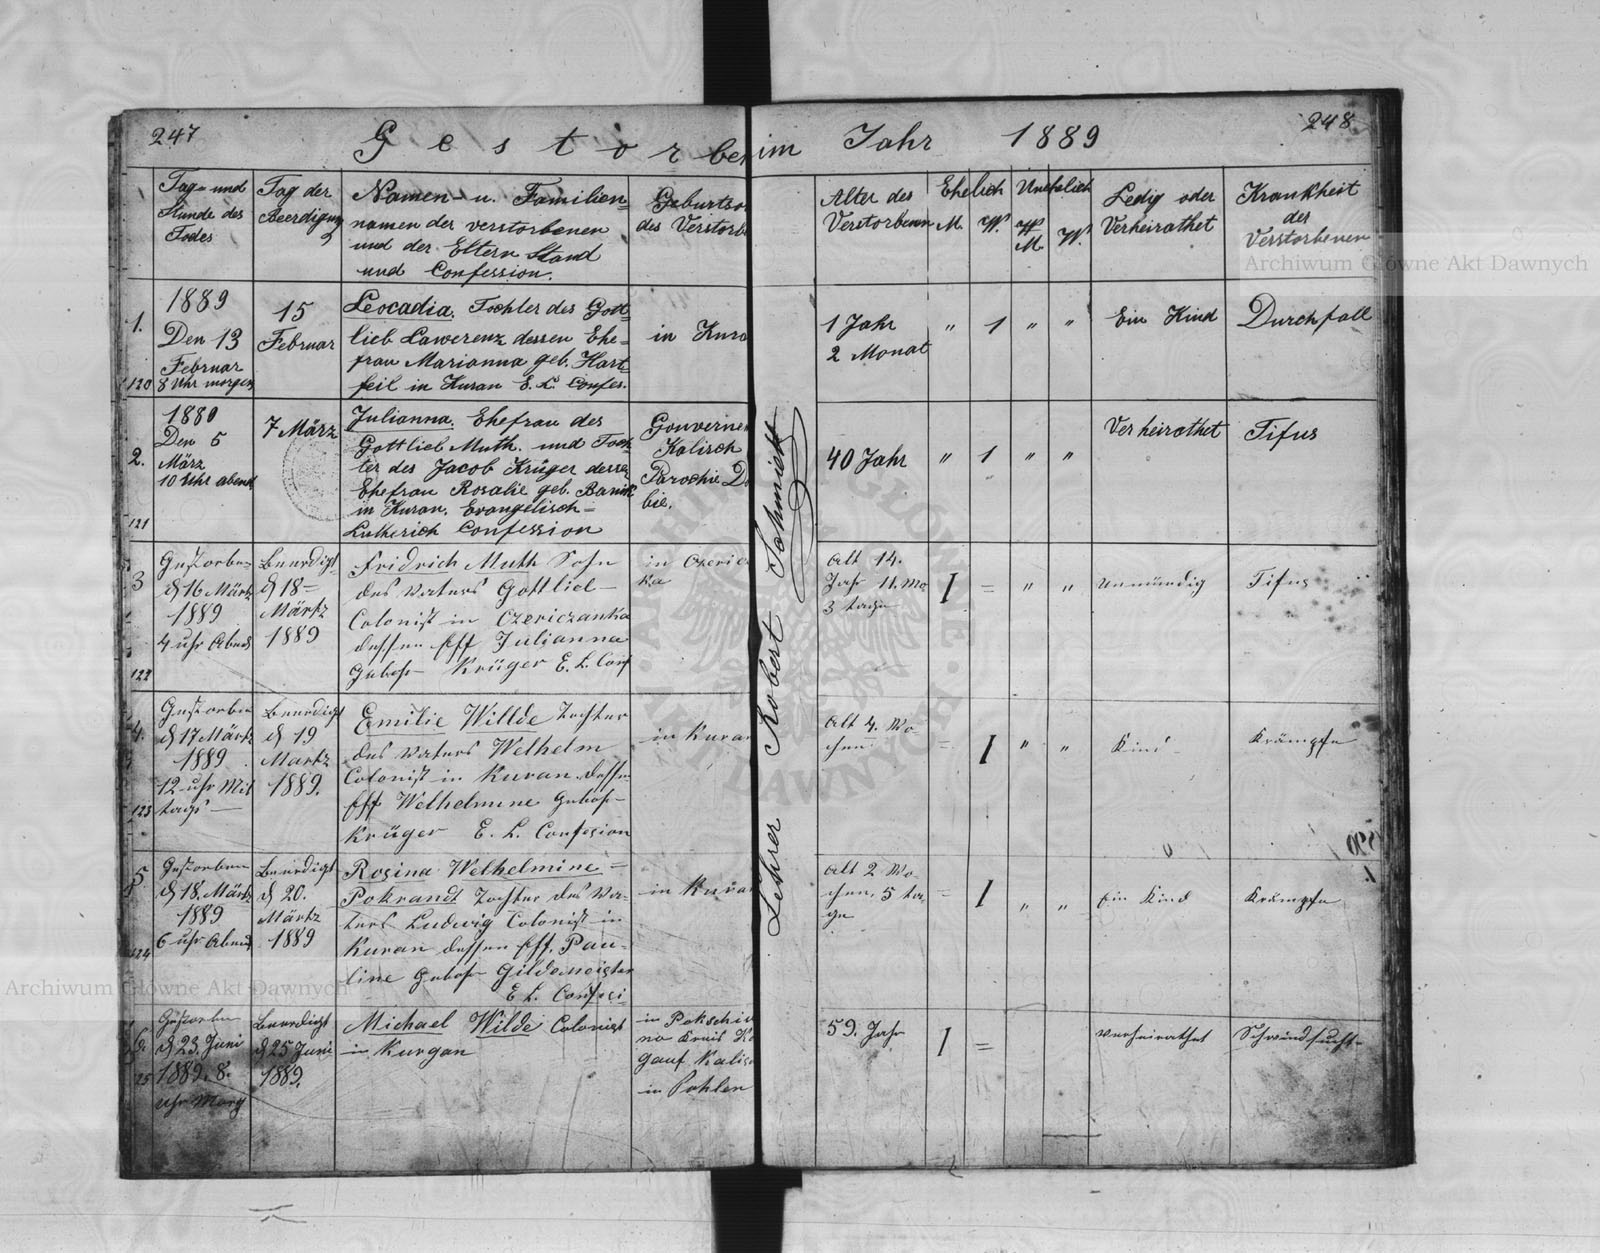 247
Gestorben im Jahr 1889
248
Tag und Stunde des Todes
Tag der Beerdigung
Namen u. Familien=
namen der verstorbenen
und der Eltern Stand
und Confession.
Geburtso
des Verstorb
Alter des
Verstorbenen
Ehelich
M. W.
Unehelich
M. W.
Ledig oder
Verheirathet
Krankheit
der
Verstorbenen
Archiwum Główne Akt Dawnych
1.
120
1889
Den 13
Februar
8 Uhr morgen
15
Februar
Leocadia. Tochter des Gott=
lieb Lawerenz dessen Ehe=
frau Marianna geb. Hart=
feil in Kuran E. L. Confes.
in Kura
1 Jahr
2 Monat
" 1 " "
Ein Kind
Durchfall
2.
121
1880
Den 5
März
10 Uhr abend
7 März
Julianna. Ehefrau des
Gottlieb Muth. und Toch
ter des Jacob Krüger dessen
Ehefrau Rosalie geb.
in Kuran. Evangelisch=
Lutherich Confession
Gouverne
Kalisch
Parochie D
bie.
40 Jahr
" 1 " "
Verheirathet
Tifus
3
122
Gestorben
d 16 Märtz
1889
4 uhr Abend
Beerdigt
d 18
Märtz
1889
Fridrich Muth Sohn
des Vaters Gottlieb
Colonist in Czericzanka
dessen Eff Julianna
Gebohr Krüger E. L. Conf
in Czeric
ka
Alt 14.
Jahr 11. Mo
3 tage
1 = " "
unmündig
Tifus
4.
123
Gestorben
d 17 Märtz
1889
12 uhr Mit
tags
Beerdigt
d 19
Martz
1889.
Emilie Willde Tochter
des Vaters Welhelm
Colonist in Kuran dessen
Eff Welhelmine Gebohr
Krüger E. L. Confesion
in Kuran
Alt 4. Wo
chen
= 1 " "
Kind
Krämpfe
5.
124
Gestorben
d 18. Märtz
1889
6 uhr Abend
Beerdigt
d 20.
Märtz
1889
Rosina Welhelmine =
Pokrandt Tochter des Va=
ters Ludwig Colonist in
Kuran dessen Eff. Pau=
line Gebohr Gildemeister
E L. Confesi
in Kura
Alt 2 Wo
chen, 5 ta
ge
= 1 " "
Ein Kind
Krämpfe
6.
25
Gestorben
d 23. Juni
1889. 8.
uhr Morg
Beerdigt
d 25 Juni
1889.
Michael Wilde Colonist
in Kurgan
in Pokschiw
no Kreis Ko
gauf Kalisch
in Pohlen
59. Jahr
1 =
verheirathet
Schwindsucht
Lehrer Robert Schmidt
ARCHIWUM GŁÓWNE AKT DAWNYCH
Archiwum Główne Akt Dawnych